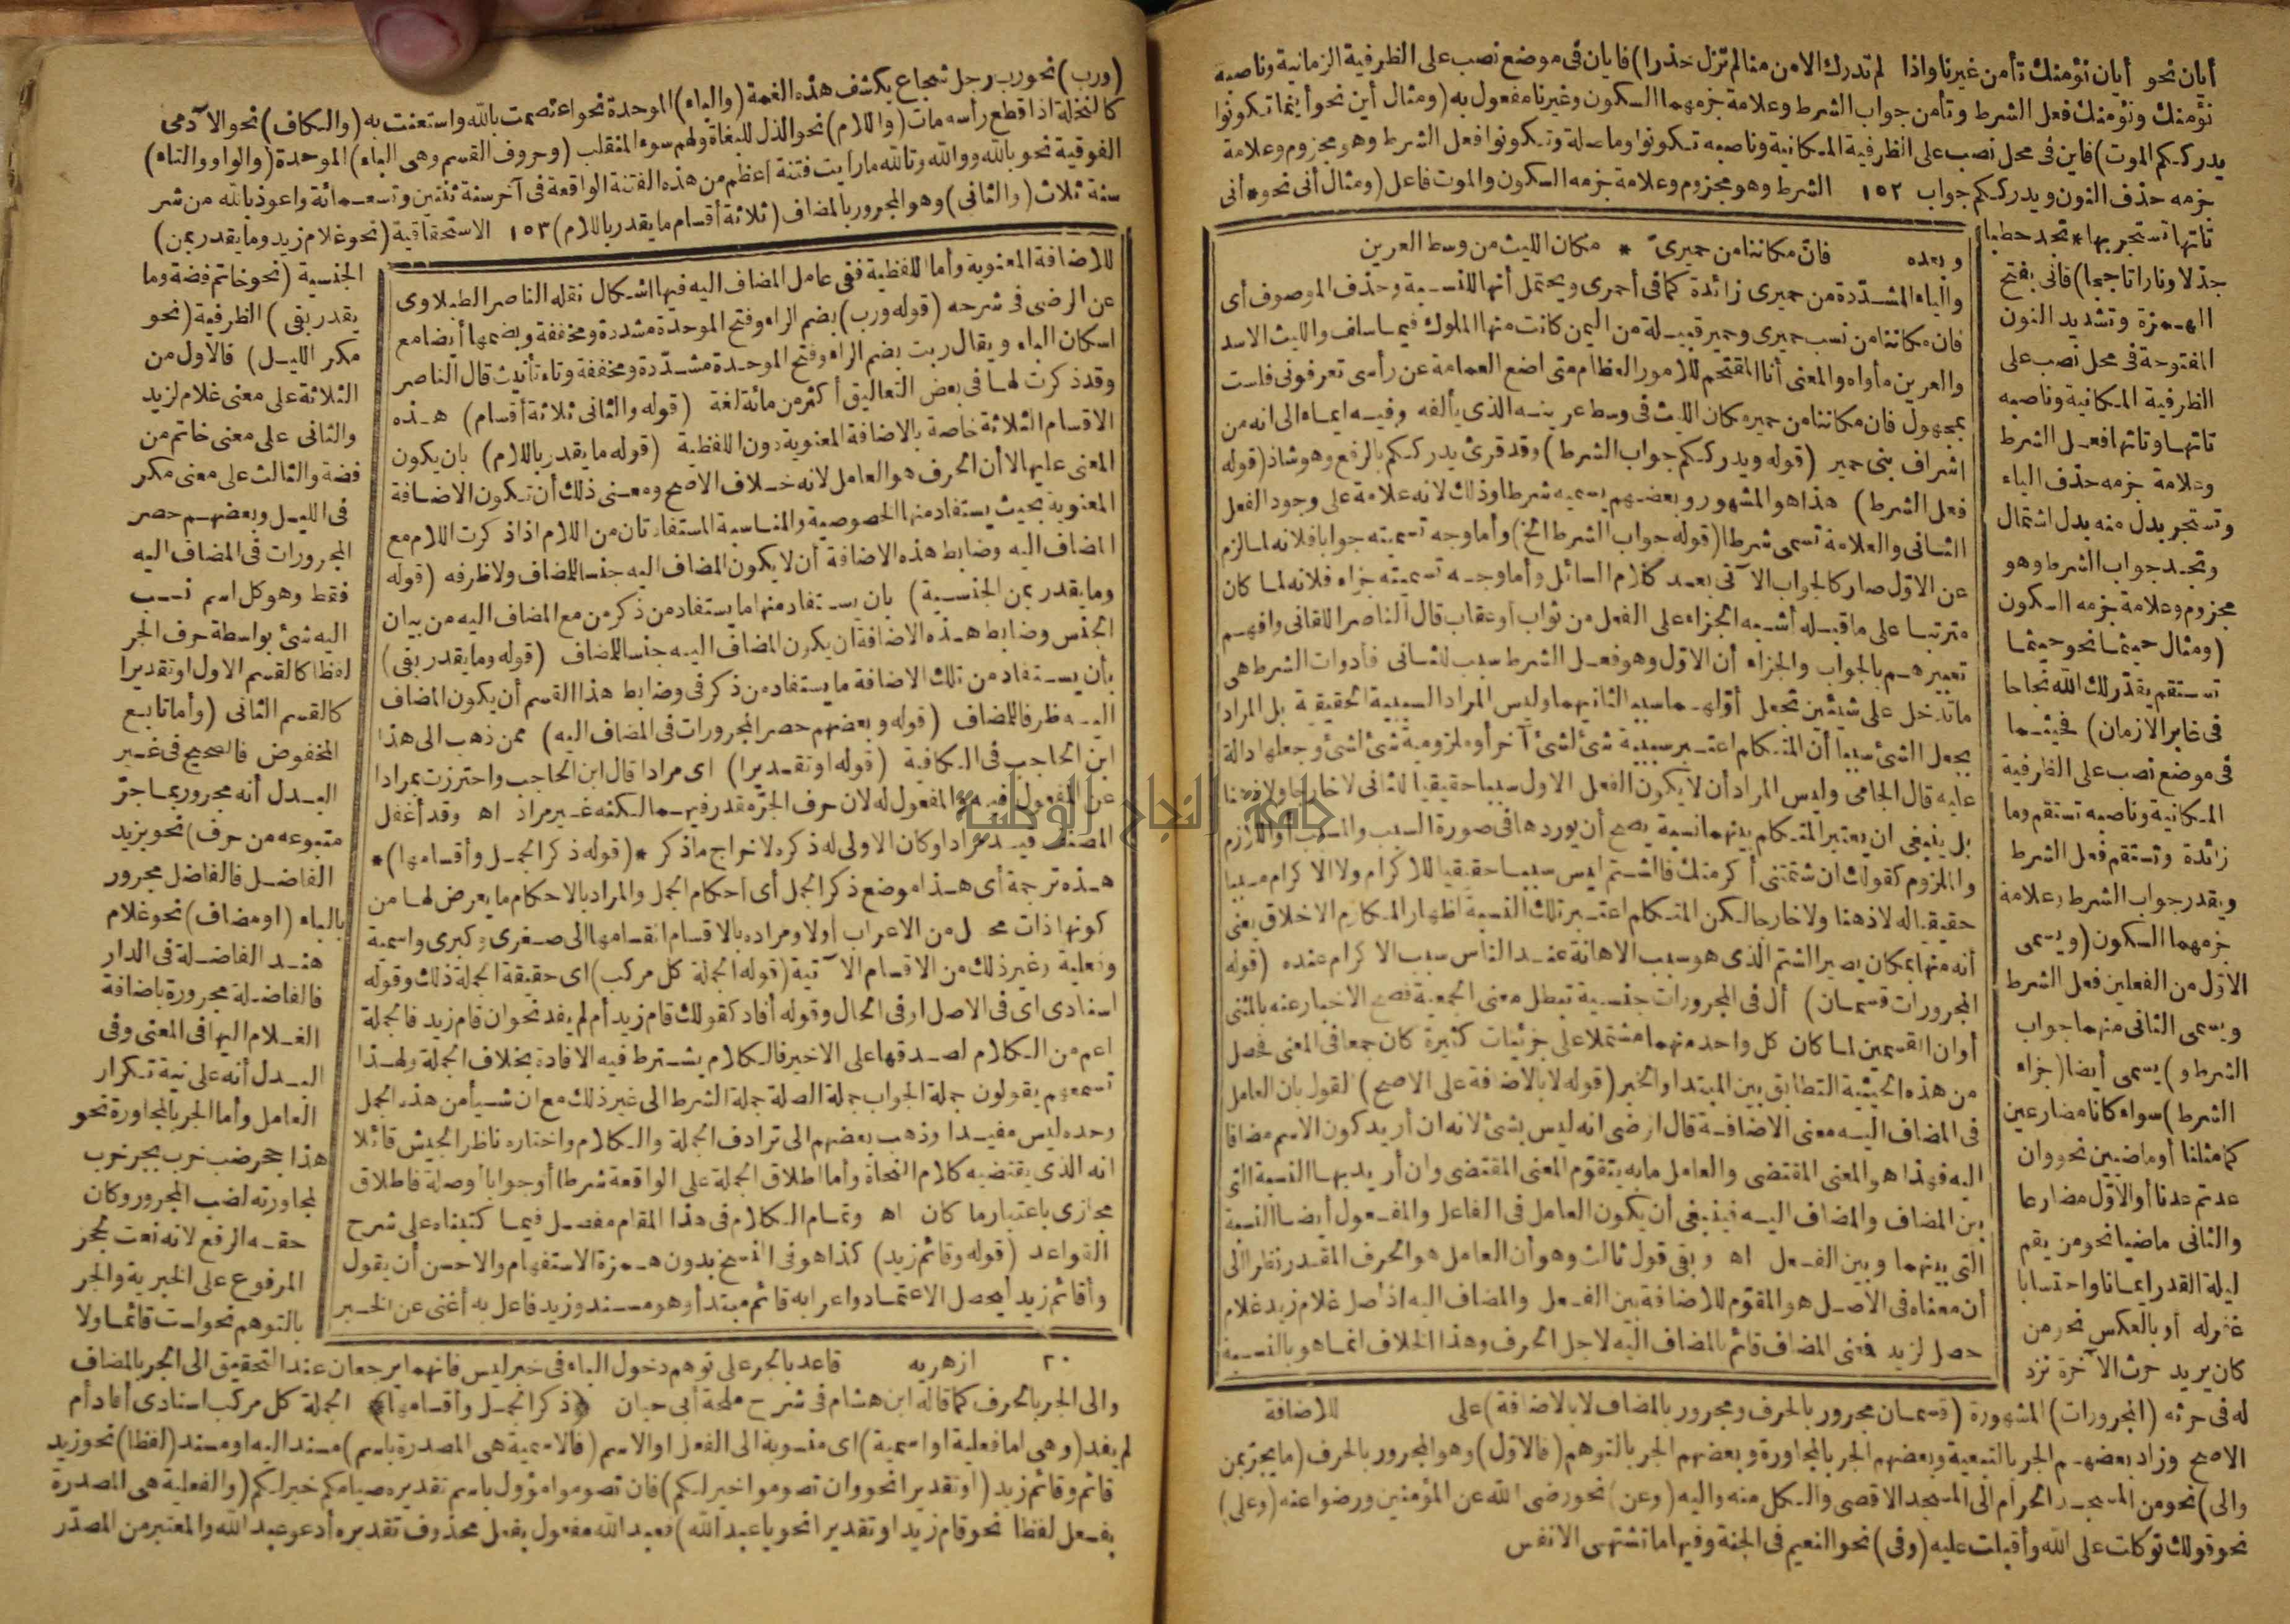 أيان نحو أيان نؤمنك تأمن غيرنا واذا لم تدرك الامن منا لم تزل حذرا) فايان فى موضع نصب على الظرفية الزمانية وناصبه
نؤمنك ونؤمنك فعل الشرط وتأمن جواب الشرط وعلامة جزمهما السكون وغيرنا مفعول به (ومثال أين نحو أينما تكونوا
يدرككم الموت) فاين فى محل نصب على الظرفية المكانية وناصبه تكونوا وما صلة وتكونوا فعل الشرط وهو مجزوم وعلامة
جزمه حذف النون ويدرككم جواب ١٥٢ الشرط وهو مجزوم وعلامة جزمه السكون والموت فاعل (ومثال أنى نحو * أنى
تأتها تستجر بها * تجد حطبا
جذلا ونارا تأججا) فانى بفتح
الهمزة وتشديد النون
المفتوحة فى محل نصب على
الظرفية المكانية وناصبه
تاتها وتاتها فعل الشرط
وعلامة جزمه حذف الياء
وتستجر بدل منه بدل اشتمال
وتجد جواب الشرط وهو
مجزوم وعلامة جزمه السكون
(ومثال حيثما نحو حيثما
تستقم يقدر لك الله نجاحا
فى غابر الازمان) فحيثما
فى موضع نصب على الظرفية
المكانية وناصبه تستقم وما
زائدة وتستقم فعل الشرط
ويقدر جواب الشرط وعلامة
جزمهما السكون (ويسمى
الاول من الفعلين فعل الشرط
ويسمى الثانى منهما جواب
الشرط و) يسمى أيضا (جزاء
الشرط) سواء كانا مضارعين
كما مثلنا أو ماضيين نحو وان
عدتم عدنا أو الاول مضارعا
والثانى ماضيا نحو من يقم
ليلة القدر ايمانا واحتسابا
غفر له أو بالعكس نحو من
كان يريد حرث الآخرة نزد
وبعده فان مكاننا من حميرى * مكان الليث من وسط العرين
والياء المشددة من حميرى زائدة كما فى أحمرى ويحتمل أنها للنسبة وحذف الموصوف أى
فان مكاننا من نسب حميرى وحمير قبيلة من اليمن كانت منها الملوك فيما سلف والليث الاسد
والعرين مأواه والمعنى أنا المقتحم للامور العظام متى اضع العمامة عن رأسى تعرفونى فلست
بمجهول فان مكاننا من حمير مكان الليث فى وسط عرينه الذى يألفه وفيه ايماء الى انه من
اشراف بنى حمير (قوله ويدرككم جواب الشرط) وقد قرئ يدرككم بالرفع وهو شاذ (قوله
فعل الشرط) هذا هو المشهور وبعضهم يسميه شرطا وذلك لانه علامة على وجود الفعل
الثانى والعلامة تسمى شرطا (قوله جواب الشرط الخ) وأما وجه تسميته جوابا فلانه لما لزم
عن الاول صار كالجواب الآتى بعد كلام السائل وأما وجه تسميته جزاء فلانه لما كان
مترتبا على ما قبله أشبه الجزاء على الفعل من ثواب أو عقاب قال الناصر اللقانى وافهم
تعبيرهم بالجواب والجزاء أن الاول وهو فعل الشرط سبب للثانى فأدوات الشرط هى
ما تدخل على شيئين تجعل أولهما سببا لثانيهما وليس المراد السببية الحقيقية بل المراد
بجعل الشئ سببا أن المتكلم اعتبر سببية شئ لشئ آخر أو ملزومية شئ لشئ وجعلها دالة
عليه قال الجامى وليس المراد أن لا يكون الفعل الاول سببا حقيقيا للثانى لا خارجا ولا ذهنا
بل ينبغى ان يعتبر المتكلم بينهما نسبة يصح أن يوردها فى صورة السبب والمسبب أو اللازم
والملزوم كقولك ان شتمتنى أكرمتك فالشتم ليس سببا حقيقيا للاكرام ولا الاكرام مسببا
حقيقيا له لا ذهنا ولا خارجا لكن المتكلم اعتبر تلك النسبة اظهارا لمكارم الاخلاق يعنى
أنه منها بمكان يصير الشتم الذى هو سبب الاهانة عند الناس سبب الاكرام عنده (قوله
المجرورات قسمان) أل فى المجرورات جنسية تبطل معنى الجمعية فصح الاخبار عنه بالمثنى
أو ان القسمين لما كان كل واحد منهما مشتملا على جزئيات كثيرة كان جمعا فى المعنى فحصل
من هذه الحيثية التطابق بين المبتدا والخبر (قوله لا بالاضافة على الاصح) القول بان العامل
فى المضاف اليه معنى الاضافة قال الرضى انه ليس بشئ لانه ان أريد كون الاسم مضافا
اليه فهذا هو المعنى المقتضى والعامل ما به يتقوم المعنى المقتضى وان أريد بها النسبة التى
بين المضاف والمضاف اليه فينبغى أن يكون العامل فى الفاعل والمفعول أيضا النسبة
التى بينهما وبين الفعل اه وبقى قول ثالث وهو أن العامل هو الحرف المقدر نظرا الى
أن معناه فى الاصل هو المقوم للاضافة بين الفعل والمضاف اليه اذ أصل غلام زيد غلام
حصل لزيد فعنى المضاف قائم بالمضاف اليه لاجل الحرف وهذا الخلاف انما هو بالنسبة
للاضافة
له فى حرثه (المجرورات) المشهورة (قسمان مجرور بالحرف ومجرور بالمضاف لا بالاضافة) على
الاصح وزاد بعضهم الجر بالتبعية وبعضهم الجر بالمجاورة وبعضهم الجر بالتوهم (فالاول) وهو المجرور بالحرف (ما يجر بمن
والى) نحو من المسجد الحرام الى المسجد الاقصى والكل منه واليه (وعن) نحو رضى الله عن المؤمنين ورضوا عنه (وعلى)
نحو قولك توكلت على الله وأقبلت عليه (وفى) نحو النعيم فى الجنة وفيها ما تشتهى الانفس
(ورب) نحو رب رجل شجاع يكشف هذه الغمة (والباء) الموحدة نحو اعتصمت بالله واستعنت به (والكاف) نحو الآدمى
كالنخلة اذا قطع رأسه مات (واللام) نحو الذل للبغاة ولهم سوء المنقلب (وحروف القسم وهى الباء) الموحدة (والواو والتاء)
الفوقية نحو بالله ووالله وتالله ما رأيت فتنة أعظم من هذه الفتنة الواقعة فى آخر سنة ثنتين وتسعمائة واعوذ بالله من شر
سنة ثلاث (والثانى) وهو المجرور بالمضاف (ثلاثة أقسام ما يقدر باللام) ١٥٣ الاستحقاقية (نحو غلام زيد وما يقدر بمن)
للاضافة المعنوية وأما اللفظية ففى عامل المضاف اليه فيها اشكال نقله الناصر الطبلاوى
عن الرضى فى شرحه (قوله ورب) بضم الراء وفتح الموحدة مشددة ومخففة وبضمها أيضا مع
اسكان الباء ويقال ربت بضم الراء وفتح الموحدة مشددة ومخففة وتاء تأنيث قال الناصر
وقد ذكرت لها فى بعض التعاليق أكثر من مائة لغة (قوله والثانى ثلاثة أقسام) هذه
الاقسام الثلاثة خاصة بالاضافة المعنوية دون اللفظية (قوله ما يقدر باللام) بان يكون
المعنى عليها لا أن الحرف هو العامل لانه خلاف الاصح ومعنى ذلك أن تكون الاضافة
المعنوية بحيث يستفاد منها الخصوصية والمناسبة المستفادتان من اللام اذا ذكرت اللام مع
المضاف اليه وضابط هذه الاضافة أن لا يكون المضاف اليه جنسا للمضاف ولا ظرفه (قوله
وما يقدر بمن الجنسية) بان يستفاد منها ما يستفاد من ذكر من مع المضاف اليه من بيان
الجنس وضابط هذه الاضافة أن يكون المضاف اليه جنسا للمضاف (قوله وما يقدر بفى)
بأن يستفاد من تلك الاضافة ما يستفاد من ذكر فى وضابط هذا القسم أن يكون المضاف
اليه ظرفا للمضاف (قوله وبعضهم حصر المجرورات فى المضاف اليه) ممن ذهب الى هذا
ابن الحاجب فى الكافية (قوله او تقديرا) اى مرادا قال ابن الحاجب واحترزت بمرادا
عن المفعول فيه والمفعول له لان حرف الجر مقدر فيهما لكنه غير مراد اه وقد أغفل
المصنف قيد مرادا وكان الاولى له ذكره لاخراج ما ذكر *(قوله ذكر الجمل وأقسامها)*
هذه ترجمة أى هذا موضع ذكر الجمل أى أحكام الجمل والمراد بالاحكام ما يعرض لها من
كونها ذات محل من الاعراب أولا ومراده بالاقسام انقسامها الى صغرى وكبرى واسمية
وفعلية وغير ذلك من الاقسام الآتية (قوله الجملة كل مركب) اى حقيقة الجملة ذلك وقوله
اسنادى اى فى الاصل او فى الحال وقوله أفاد كقولك قام زيد أم لم يفد نحو ان قام زيد فالجملة
اعم من الكلام لصدقها على الاخير فالكلام يشترط فيه الافادة بخلاف الجملة ولهذا
تسمعهم يقولون جملة الجواب جملة الصلة جملة الشرط الى غير ذلك مع ان شيأ من هذه الجمل
وحده ليس مفيدا وذهب بعضهم الى ترادف الجملة والكلام واختاره ناظر الجيش قائلا
انه الذى يقتضيه كلام النحاة وأما اطلاق الجملة على الواقعة شرطا أو جوابا أو صلة فاطلاق
مجازى باعتبار ما كان اه وتمام الكلام فى هذا المقام مفصل فيما كتبناه على شرح
القواعد (قوله وقائم زيد) كذا هو فى النسخ بدون همزة الاستفهام والاحسن أن يقول
وأقائم زيد ليحصل الاعتماد واعرابه قائم مبتدأ وهو مسند وزيد فاعل به أغنى عن الخبر
الجنسية (نحو خاتم فضة وما
يقدر بفى) الظرفية (نحو
مكر الليل) فالاول من
الثلاثة على معنى غلام لزيد
والثانى على معنى خاتم من
فضة والثالث على معنى مكر
فى الليل وبعضهم حصر
المجرورات فى المضاف اليه
فقط وهو كل اسم نسب
اليه شئ بواسطة حرف الجر
لفظا كالقسم الاول او تقديرا
كالقسم الثانى (وأما تابع
المخفوض فالصحيح فى غير
البدل أنه مجرور بما جر
متبوعه من حرف) نحو بزيد
الفاضل فالفاضل مجرور
بالباء (او مضاف) نحو غلام
هند الفاضلة فى الدار
فالفاضلة مجرورة باضافة
الغلام اليها فى المعنى وفى
البدل أنه على نية تكرار
العامل وأما الجر بالمجاورة نحو
هذا جحر ضب خرب بجر خرب
لمجاورته لضب المجرور وكان
حقه الرفع لانه نعت لجحر
المرفوع على الخبرية والجر
بالتوهم نحو لست قائما ولا
٢٠ ازهريه قاعد بالجر على توهم دخول الباء فى خبر ليس فانهما يرجعان عند التحقيق الى الجر بالمضاف
والى الجر بالحرف كما قاله ابن هشام فى شرح ملحة أبى حيان ﴿ذكر الجمل وأقسامها﴾ الجملة كل مركب اسنادى أفاد أم
لم يفد (وهى اما فعلية او اسمية) اى منسوبة الى الفعل او الاسم (فالاسمية هى المصدرة باسم) مسند اليه او مسند (لفظا) نحو زيد
قائم وقائم زيد (او تقديرا نحو وان تصوموا خير لكم) فان تصوموا مؤول باسم تقديره صيامكم خير لكم (والفعلية هى المصدرة
بفعل لفظا نحو قام زيد او تقديرا نحو يا عبد الله) فعبد الله مفعول بفعل محذوف تقديره أدعو عبد الله والمعتبر من المصدر
جامعة النجاح الوطنية